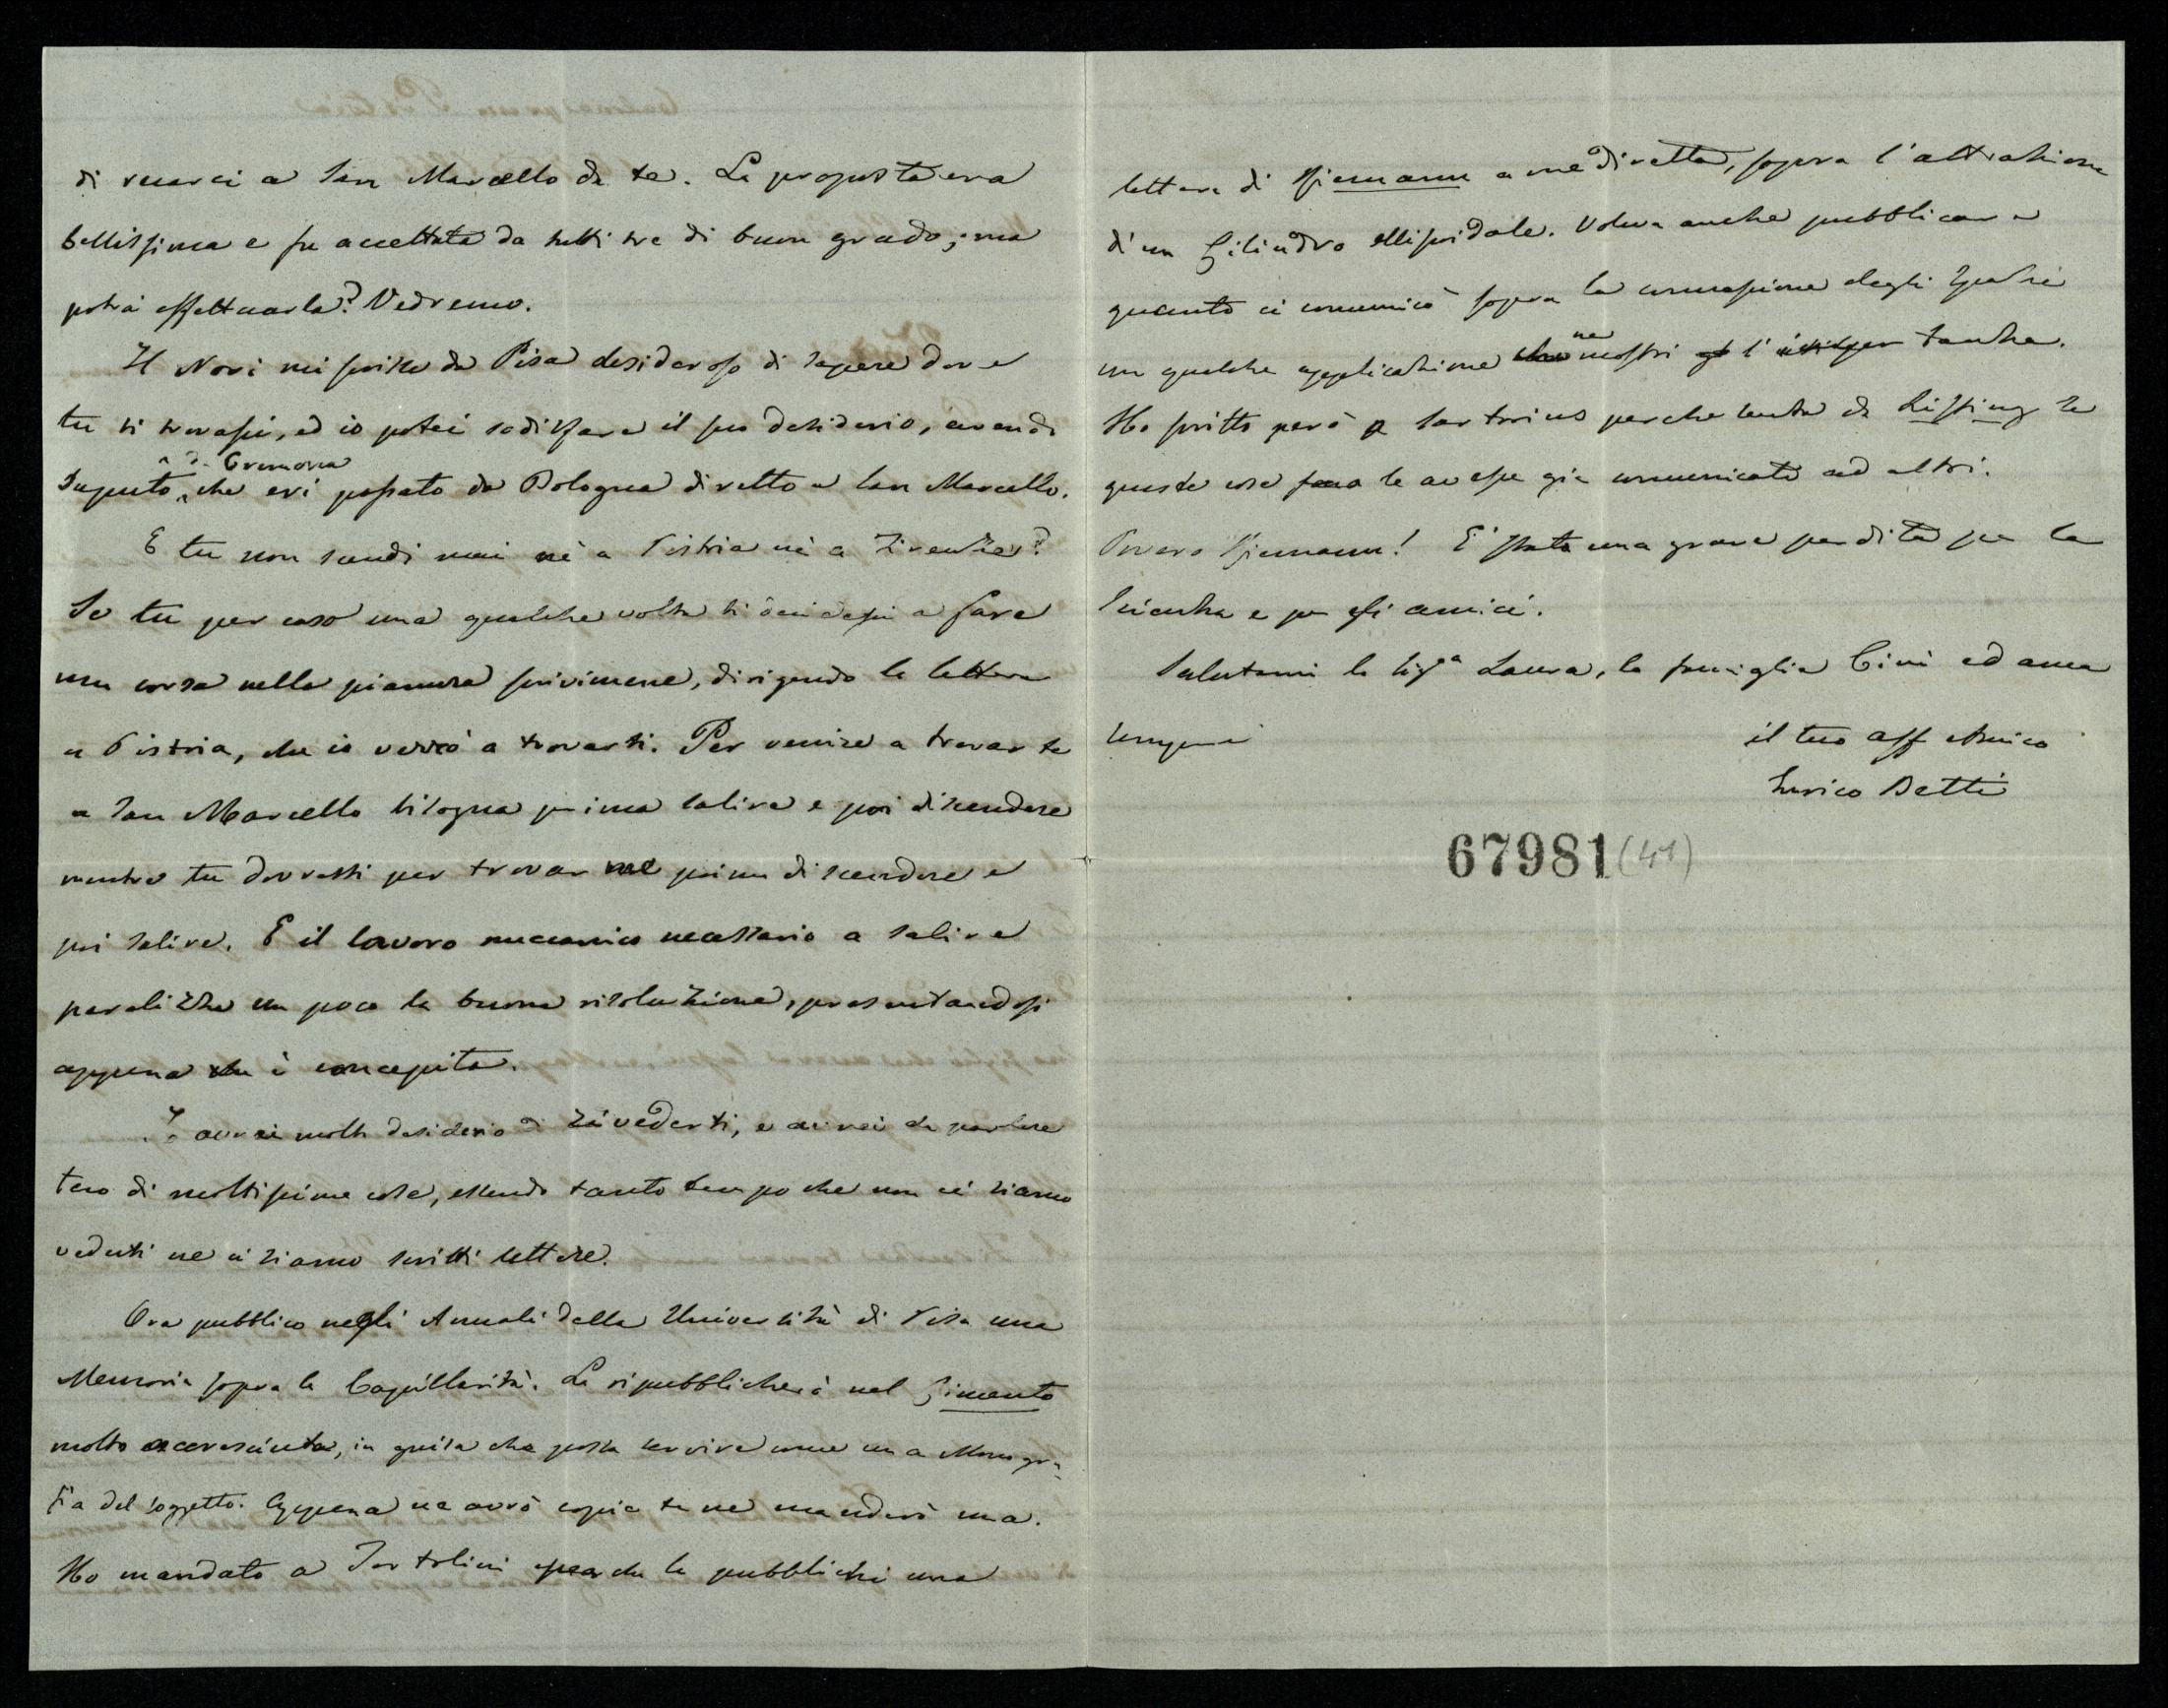 di recarci a San Marcello da te. La proposta era
bellissima e fu accettata da tutti tre di buon grado; ma
potrà effettuarla? Vedremo.
Il Novi mi scrisse da Pisa desideroso di sapere dove
tu ti trovassi, ed io potei sodisfare il suo desiderio, avendo
da Cremona
saputo che eri passato da Bologna diretto a San Marcello.
E tu non scendi mai nè a Pistoia nè a Firenze?
Se tu per caso una qualche volta ti decidessi a fare
una corsa nella pianura scrivimene, dirigendo la lettera
a Pistoia, che io verrò a trovarti. Per venire a trovar te
a San Marcello bisogna prima salire e poi discendere
mentre tu dovresti per trovar me prima discendere e
poi salire. E il lavoro meccanico necessario a salire
paralizza un poco la buona risoluzione, presentandosi
appena che è concepita.
Io avrei molto desiderio di rivederti, e avrei da parlare
teco di moltissime cose, essendo tanto tempo che non ci siamo
veduti ne ci siamo scritti lettere.
Ora pubblico negli Annali della Università di Pisa una
Memoria sopra la Capillarità. La ripubblicherò nel Cimento
molto accresciuta, in guisa che possa servire come una Monogra-
fia del soggetto. Appena ne avrò copie te ne manderò una.
Ho mandato a Tortolini perche la pubblichi una
lettera di Riemann a me diretta, sopra l'attrazione
d'un Cilindro ellissoidale. Voleva anche pubblicare
quanto ci comunicò sopra la connessione degli Spazi
ne
un qualche applicazione che mostri l' tanza.
Ho scritto però a Sartorius perche senta da Listing se
queste cose le avesse già comunicate ad altri.
Povero Riemann! E' stata una grave perdita per la
Scienza e per gli amici.
Salutami la Sigª Laura, la famiglia Cini ed ama
sempre
il tuo aff Amico
Enrico Betti
67981 (41)